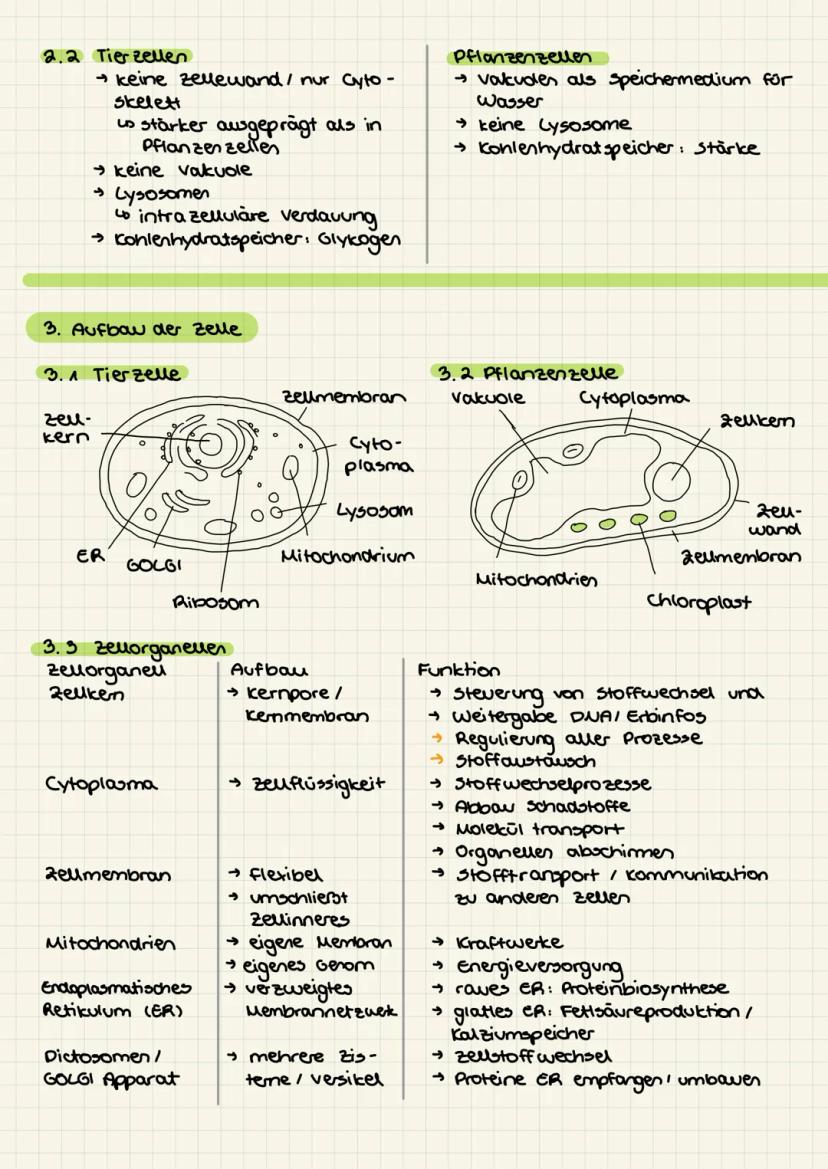 2.2 Tierzellen
→ keine Zellewand / nur Cyto-
skelett
↳ stärker ausgeprägt als in
Pflanzenzellen
→ keine Vakuole
→ Lysosomen
↳ intrazelluläre Verdauung
→ Kohlenhydratspeicher: Glykogen
Pflanzenzellen
→ Vakuolen als Speichermedium für
Wasser
→ keine Lysosome
→ Kohlenhydratspeicher: Stärke
3. Aufbau der Zelle
3.1 Tierzelle
Zell-
kern
Zellmembran
Cyto-
plasma
Lysosom
Mitochondrium
ER
GOLGI
Ribosom
3.2 Pflanzenzelle
Vakuole
Cytoplasma
Zellkern
Zell-
wand
Zellmembran
Mitochondrien
Chloroplast
3.3 Zellorganellen
Zellorganell Aufbau Funktion
Zellkern → Kernpore / → Steuerung von Stoffwechsel und
Kernmembran → Weitergabe DNA / Erbinfos
→ Regulierung aller Prozesse
→ Stoffaustausch
Cytoplasma → Zellflüssigkeit → Stoffwechselprozesse
→ Abbau Schadstoffe
→ Molekül transport
→ Organellen abschirmen
Zellmembran → flexibel → Stofftransport / Kommunikation
→ umschließt zu anderen Zellen
Zellinneres
Mitochondrien → eigene Membran → Kraftwerke
→ eigenes Genom → Energieversorgung
Endoplasmatisches → verzweigtes → raues ER: Proteinbiosynthese
Retikulum (ER) Membrannetzwek → glattes ER: Fettsäureproduktion /
Kalziumspeicher
Dictosomen / → mehrere Zis- → Zellstoffwechsel
GOLGI Apparat terne / Versikel → Proteine ER empfangen / umbauen